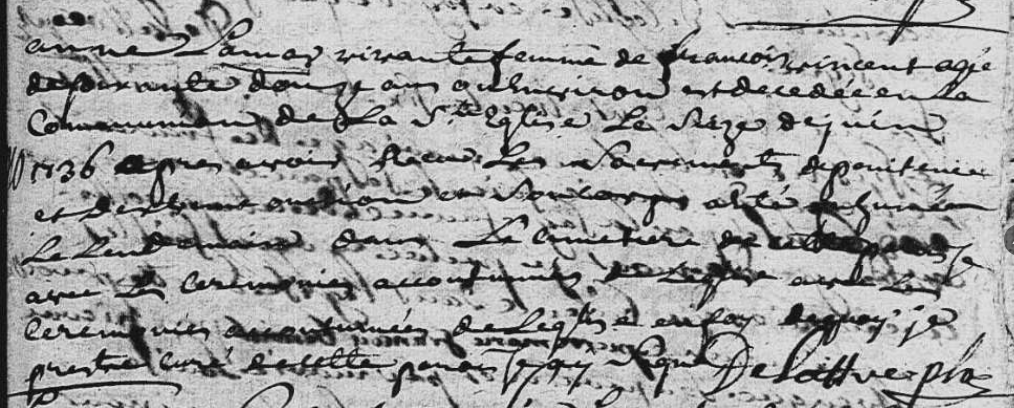 anne Lamar vivante femme de francois vincent agé
de soixante douze ans ou environ est decedée en La
Communion de La Ste Eglise Le seize de juin
1736 apres avoir Receu Les Sacrements de penitence
et d'extreme onction et son corps a été inhumé
Le Lendemain dans Le cimetiere de cette
avec Les ceremonies accoutumées de L'eglise avec Les
ceremonies accoutumées de L'eglise en foy de quoy je
prestre curé de cette paroisse ay signé Delattre pbr